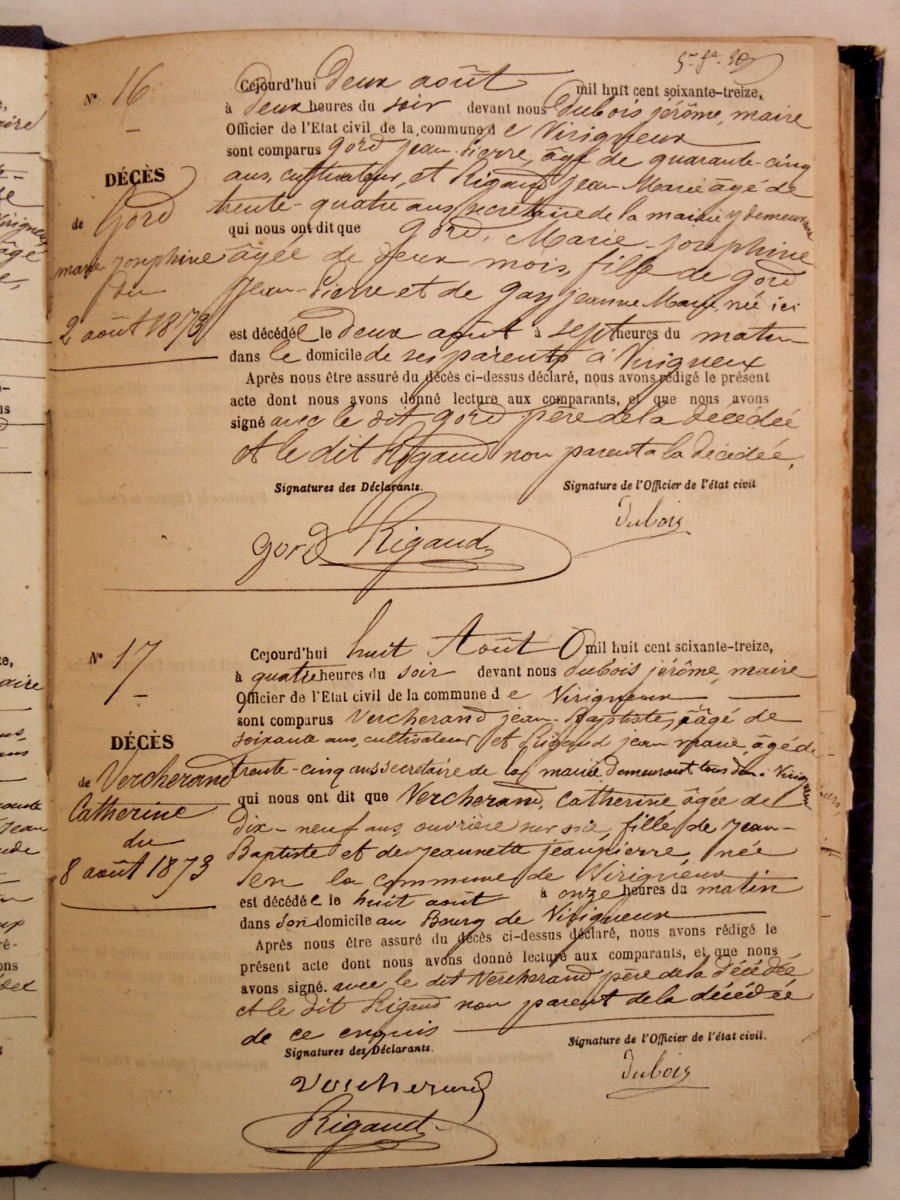 Nº 16
DÉCÈS
de Gord
marie josephine
du
2 août 1873
Cejourd'hui deux août mil huit cent soixante-treize,
à deux heures du soir devant nous Dubois jérôme, maire
Officier de l'Etat civil de la commune de Virigneux
sont comparus Gord jean-Pierre, âgé de quarante-cinq
ans, cultivateur, et Rigaud jean Marie âgé de
trente-quatre ans secrétaire de la mairie y demeurant
qui nous ont dit que Gord, Marie-josephine
âgée de deux mois, fille de Gord
Jean-Pierre et de Gay jeanne Marie, née ici
est décédée le deux août à sept heures du matin
dans le domicile de ses parents à Virigneux
Après nous être assuré du décès ci-dessus déclaré, nous avons rédigé le présent
acte dont nous avons donné lecture aux comparants, et que nous avons
signé avec le dit Gord père de la décédée
et le dit Rigaud non parent a la décédée.
Signatures des Déclarants. Signature de l'Officier de l'état civil
Dubois
gord Rigaud
Nº 17
DÉCÈS
de Vercherand
Catherine
du
8 août 1873
Cejourd'hui huit Août mil huit cent soixante-treize,
à quatre heures du soir devant nous Dubois jérôme, maire
Officier de l'Etat civil de la commune de Virigneux
sont comparus Vercherand jean-Baptiste, âgé de
soixante ans, cultivateur et Rigaud jean marie, âgé de
trente-cinq ans secrétaire de la mairie demeurant tous deux à Virigneux
qui nous ont dit que Vercherand, Catherine âgée de
dix-neuf ans, ouvrière sur soie, fille de Jean-
Baptiste et de Jeannette jeanpierre, née
en la commune de Virigneux
est décédée le huit août à onze heures du matin
dans son domicile au Bourg de Virigneux
Après nous être assuré du décès ci-dessus déclaré, nous avons rédigé le
présent acte dont nous avons donné lecture aux comparants, et que nous
avons signé. avec le dit Vercherand père de la décédée
et le dit Rigaud non parent de la décédée
de ce enquis
Signatures des Déclarants. Signature de l'Officier de l'état civil.
Dubois
Vercherand
Rigaud